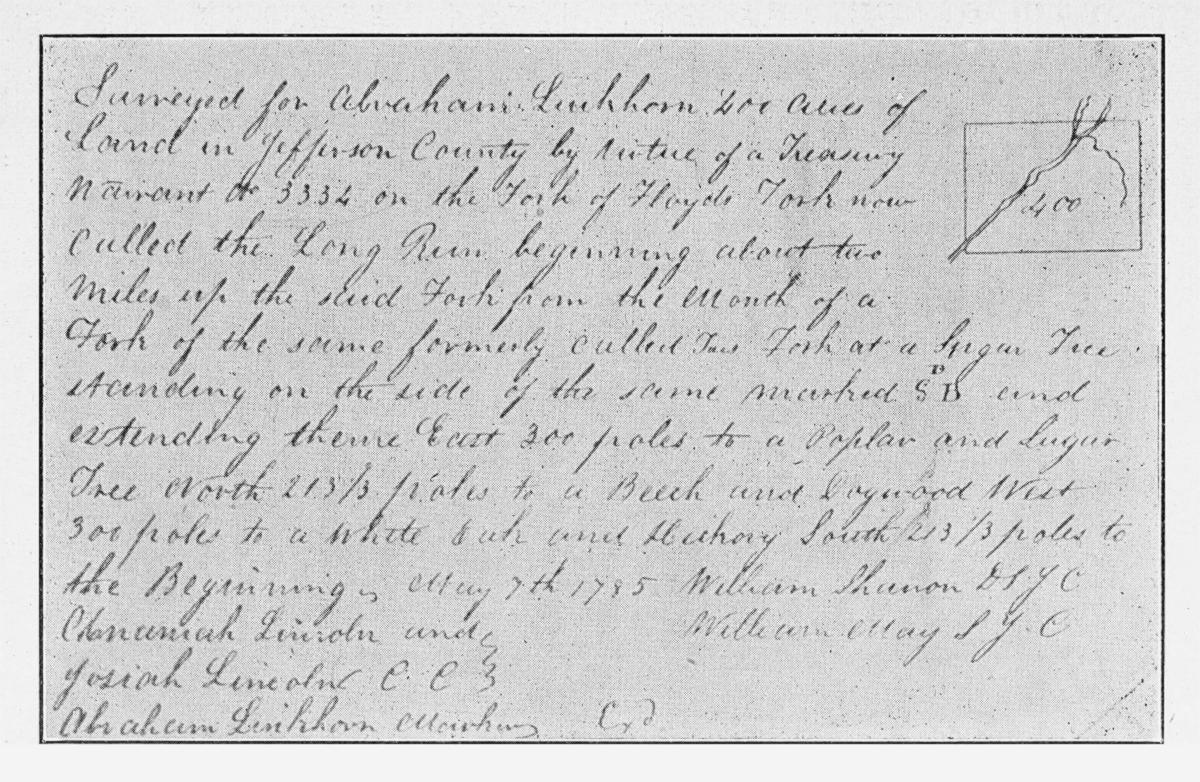 Surveyed for Abraham Linkhorn 400 acres of
Land in Jefferson County by virtue of a Treasury
Warrant No 3334 on the Fork of Floyds Fork now
Called the Long Run beginning about two
Miles up the said Fork from the Mouth of a
Fork of the same formerly Called Tues Fork at a Sugar Tree
standing on the side of the same marked S D B and
extending thence East 300 poles to a Poplar and Sugar
Tree North 213 1/3 poles to a Beech and Dogwood West
300 poles to a White Oak and Hickory South 213 1/3 poles to
the Beginning May 7th 1785 William Shanon D S J C
Ananiah Lincoln and William May S J C
Josiah Lincoln C C
Abraham Linkhorn
400